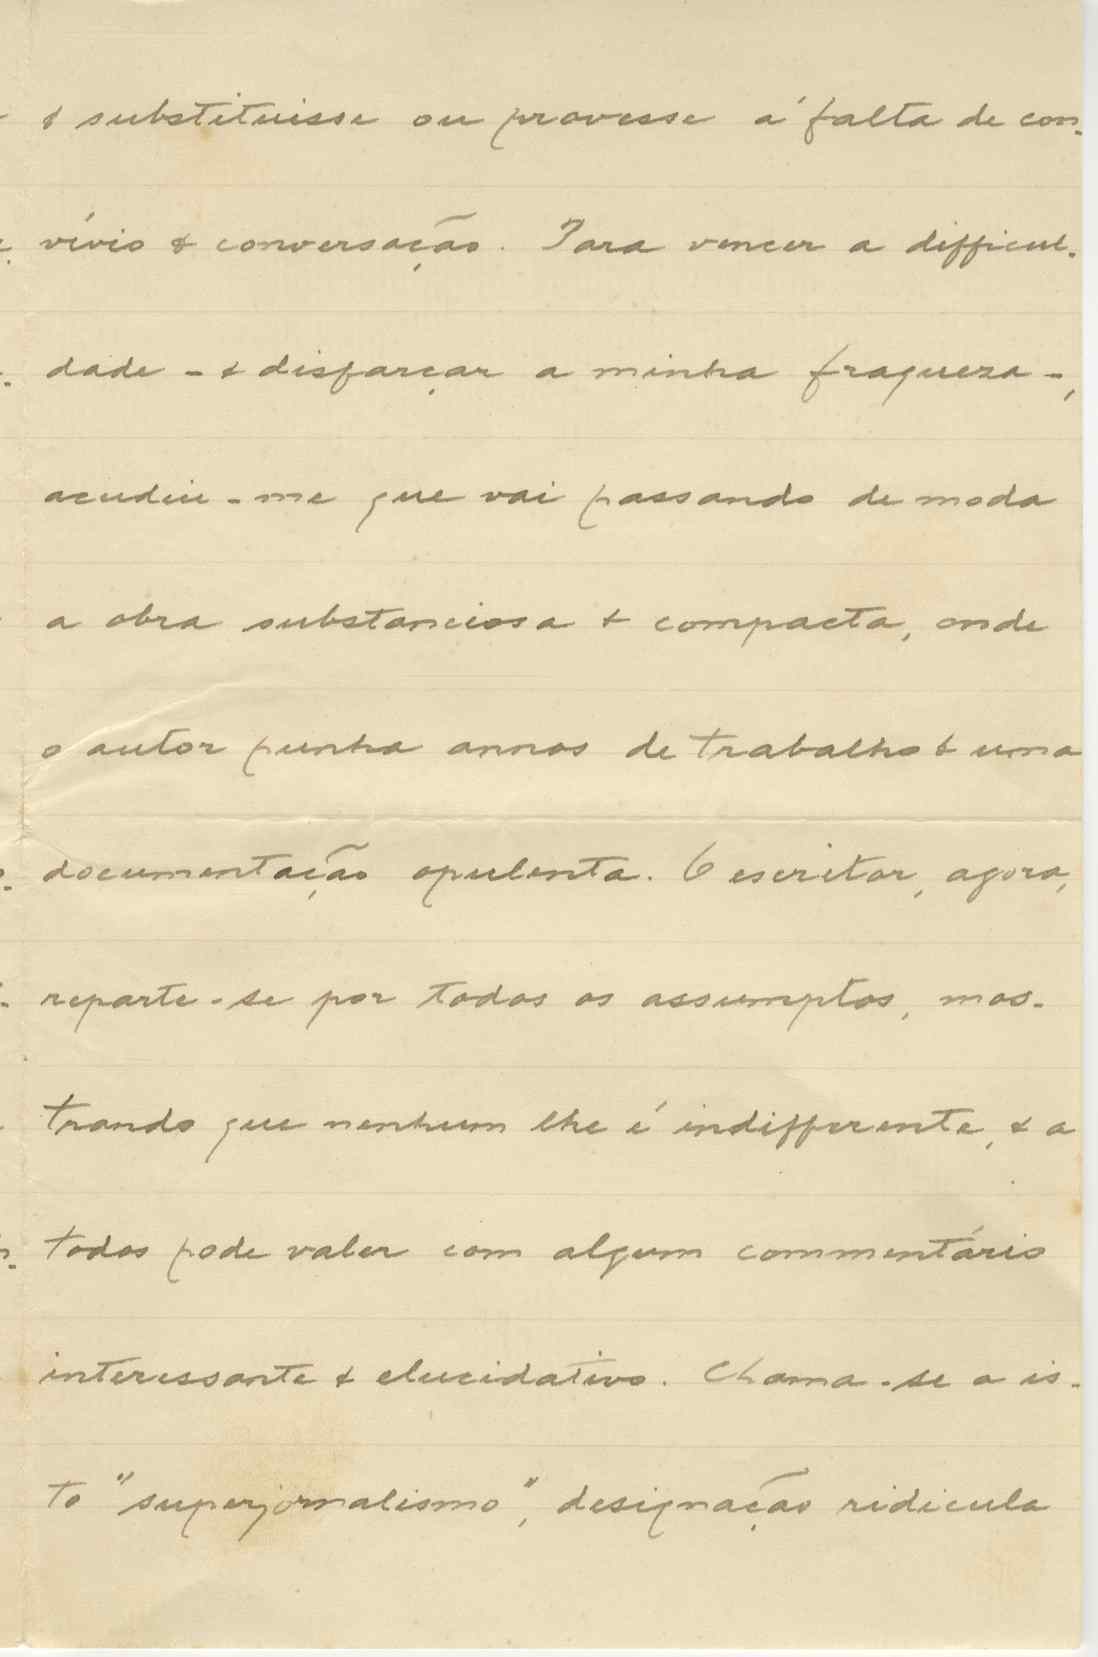 & substituisse ou provesse á falta de con-
vívio & conversação. Para vencer a difficul-
dade - & disfarçar a minha fraqueza -,
acudiu-me que vai passando de moda
a obra substanciosa & compacta, onde
o autor punha annos de trabalho & uma
documentação opulenta. O escritor, agora,
reparte-se por todos os assumptos, mos-
trando que nenhum lhe é indifferente, & a
todos pode valer com algum commentário
interessante & elucidativo. Chama-se a is-
to "superjornalismo", designação ridicula